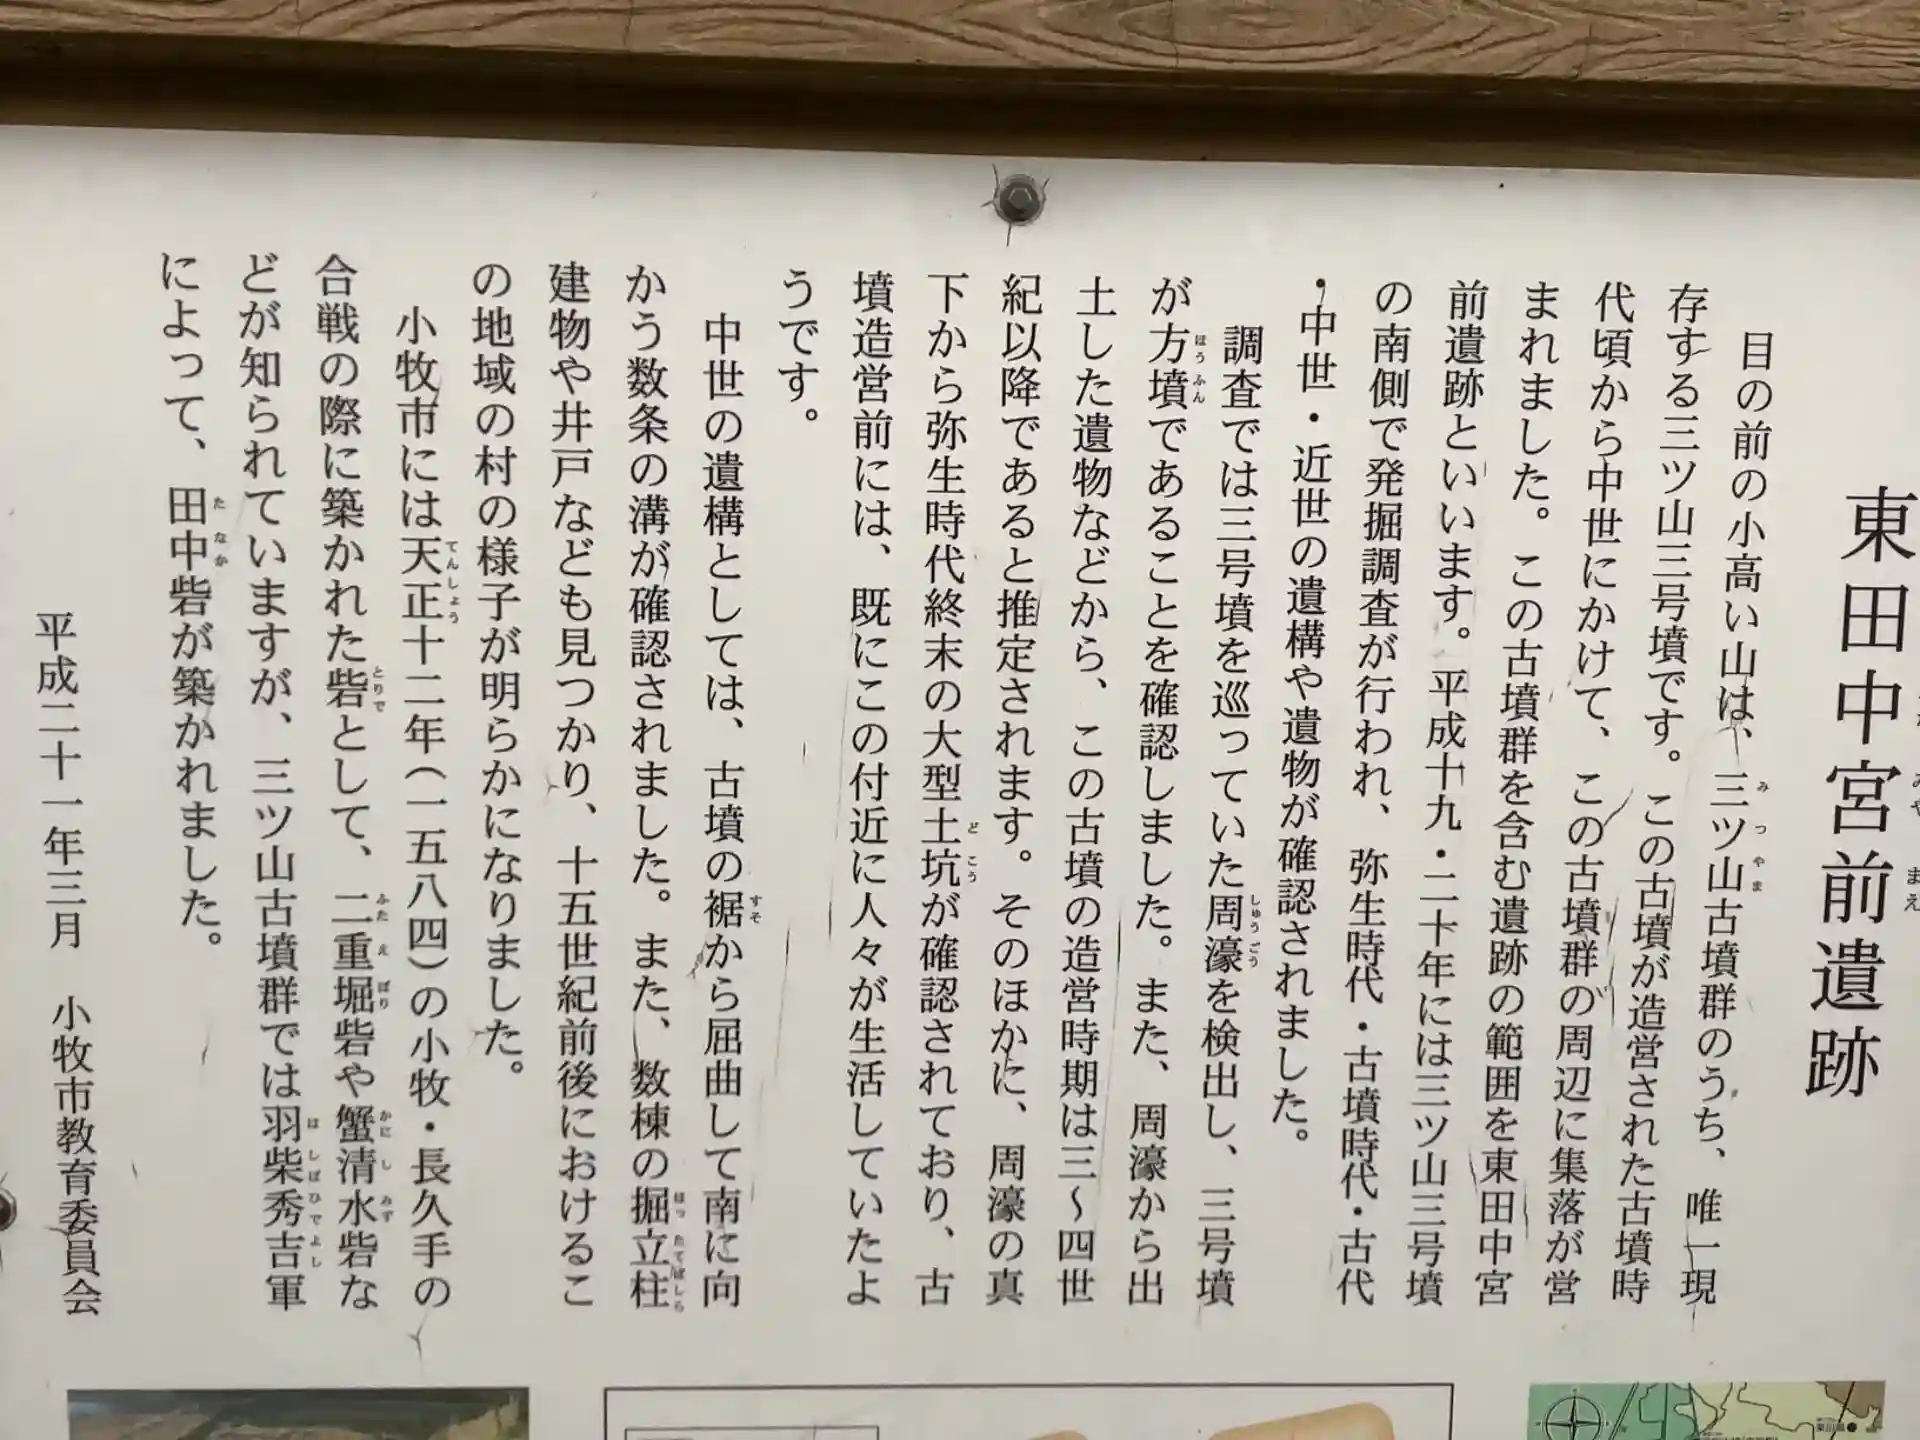 東田中宮前遺跡
目の前の小高い山は、三ツ山古墳群のうち、唯一現
存する三ツ山三号墳です。この古墳が造営された古墳時
代頃から中世にかけて、この古墳群の周辺に集落が営
まれました。この古墳群を含む遺跡の範囲を東田中宮
前遺跡といいます。平成十九・二十年には三ツ山三号墳
の南側で発掘調査が行われ、弥生時代・古墳時代・古代
・中世・近世の遺構や遺物が確認されました。
調査では三号墳を巡っていた周濠を検出し、三号墳
が方墳であることを確認しました。また、周濠から出
土した遺物などから、この古墳の造営時期は三〜四世
紀以降であると推定されます。そのほかに、周濠の真
下から弥生時代終末の大型土坑が確認されており、古
墳造営前には、既にこの付近に人々が生活していたよ
うです。
中世の遺構としては、古墳の裾から屈曲して南に向
かう数条の溝が確認されました。また、数棟の掘立柱
建物や井戸なども見つかり、十五世紀前後におけるこ
の地域の村の様子が明らかになりました。
小牧市には天正十二年(一五八四)の小牧・長久手の
合戦の際に築かれた砦として、二重堀砦や蟹清水砦な
どが知られていますが、三ツ山古墳群では羽柴秀吉軍
によって、田中砦が築かれました。
平成二十一年三月 小牧市教育委員会